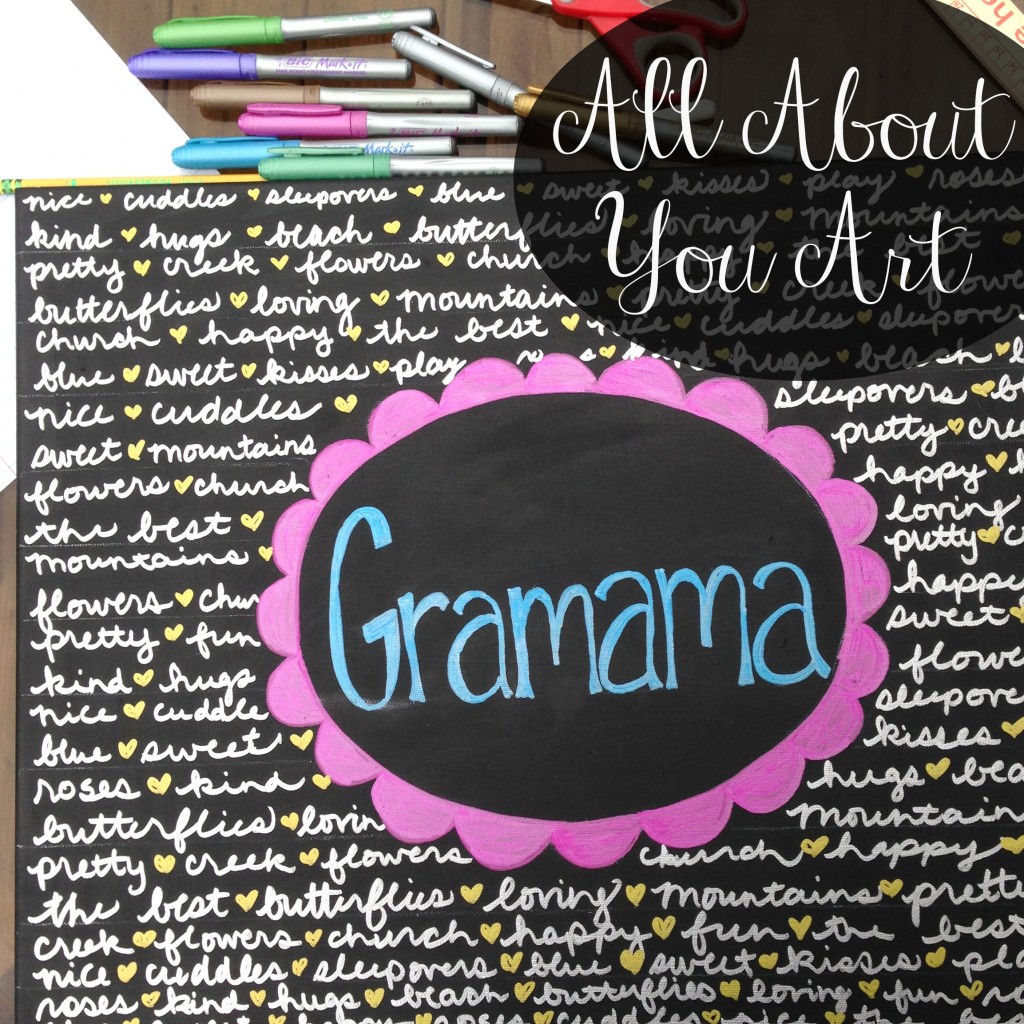 BIC Mark-it
BIC Mark-it
All About
You Art
nice cuddles sleepovers blue sweet kisses play roses
kind hugs beach butterflies loving mountains
pretty creek flowers church happy the best
butterflies loving mountains pretty creek flowers
church happy the best nice cuddles sleepovers
blue sweet kisses play roses kind hugs beach
nice cuddles sleepovers
sweet mountains pretty
flowers church happy
the best loving
mountains pretty
flowers happy
pretty fun sweet
kind hugs
nice sleepove
blue sweet kisses
roses kind hugs
butterflies lovin mountain
pretty creek flowers church happy
the best butterflies loving mountains pretty
creek flowers church happy fun the best
nice cuddles sleepovers blue sweet kisses
roses kind hugs beach butterflies loving fun
Gramama